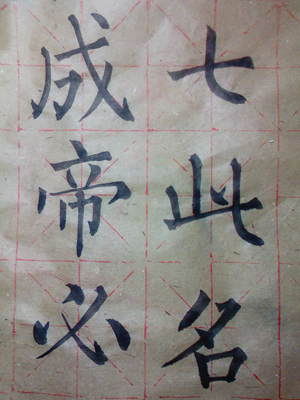 七此名
成帝必